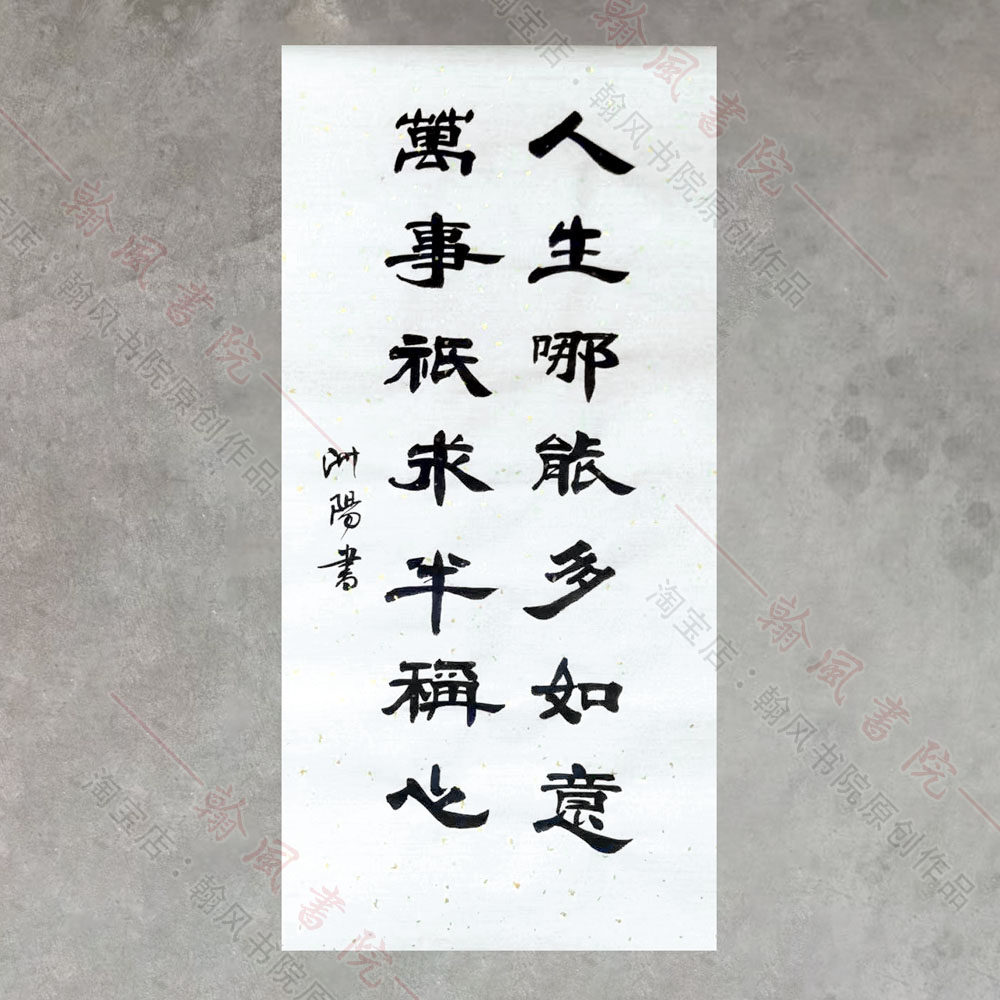 人生哪能多如意
萬事祇求半稱心
洲陽書
翰風書院
淘宝店·翰风书院原创作品
翰風書院
淘宝店·翰风书院原创作品
翰風書院
淘宝店·翰风书院原创作品
翰風書院
淘宝店·翰风书院原创作品